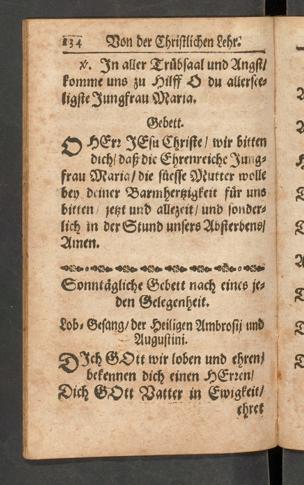 134 Von der Christlichen Lehr.
℣. In aller Trübsaal und Angst/
komme uns zu Hilff O du allersee-
ligste Jungfrau Maria.
Gebett.
O HErr JEsu Christe/ wir bitten
dich/ daß die Ehrenreiche Jung-
frau Maria/ die süesse Mutter wolle
bey deiner Barmhertzigkeit für uns
bitten/ jetzt und allezeit/ und sonder-
lich in der Stund unsers Absterbens/
Amen.
Sonntägliche Gebett nach eines je-
den Gelegenheit.
Lob-Gesang/ der Heiligen Ambrosij und
Augustini.
DIch GOtt wir loben und ehren/
bekennen dich einen HErren/
Dich GOtt Vatter in Ewigkeit/
ehret